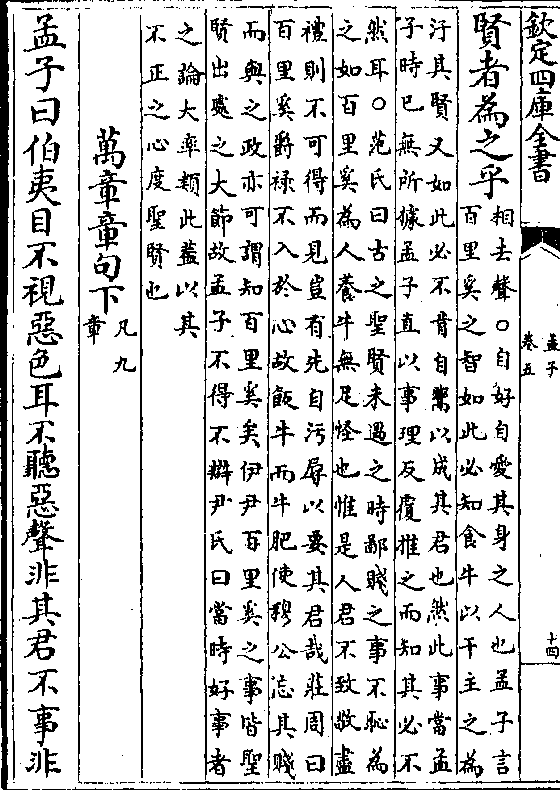 欽定四庫全書
孟子
卷五
十四
賢者為之乎
相去聲〇自好自愛其身之人也孟子言
百里奚之智如此必知食牛以干主之為
汙其賢又如此必不肯自鬻以成其君也然此事當孟
子時已無所據孟子直以事理反覆推之而知其必不
然耳〇范氏曰古之聖賢未遇之時鄙賤之事不恥為
之如百里奚為人養牛無足怪也惟是人君不致敬盡
禮則不可得而見豈有先自污辱以要其君哉莊周曰
百里奚爵祿不入於心故飯牛而牛肥使穆公忘其賤
而與之政亦可謂知百里奚矣伊尹百里奚之事皆聖
賢出處之大節故孟子不得不辯尹氏曰當時好事者
之論大率類此蓋以其
不正之心度聖賢也
萬章章句下
凡九
章
孟子曰伯夷目不視惡色耳不聽惡聲非其君不事非